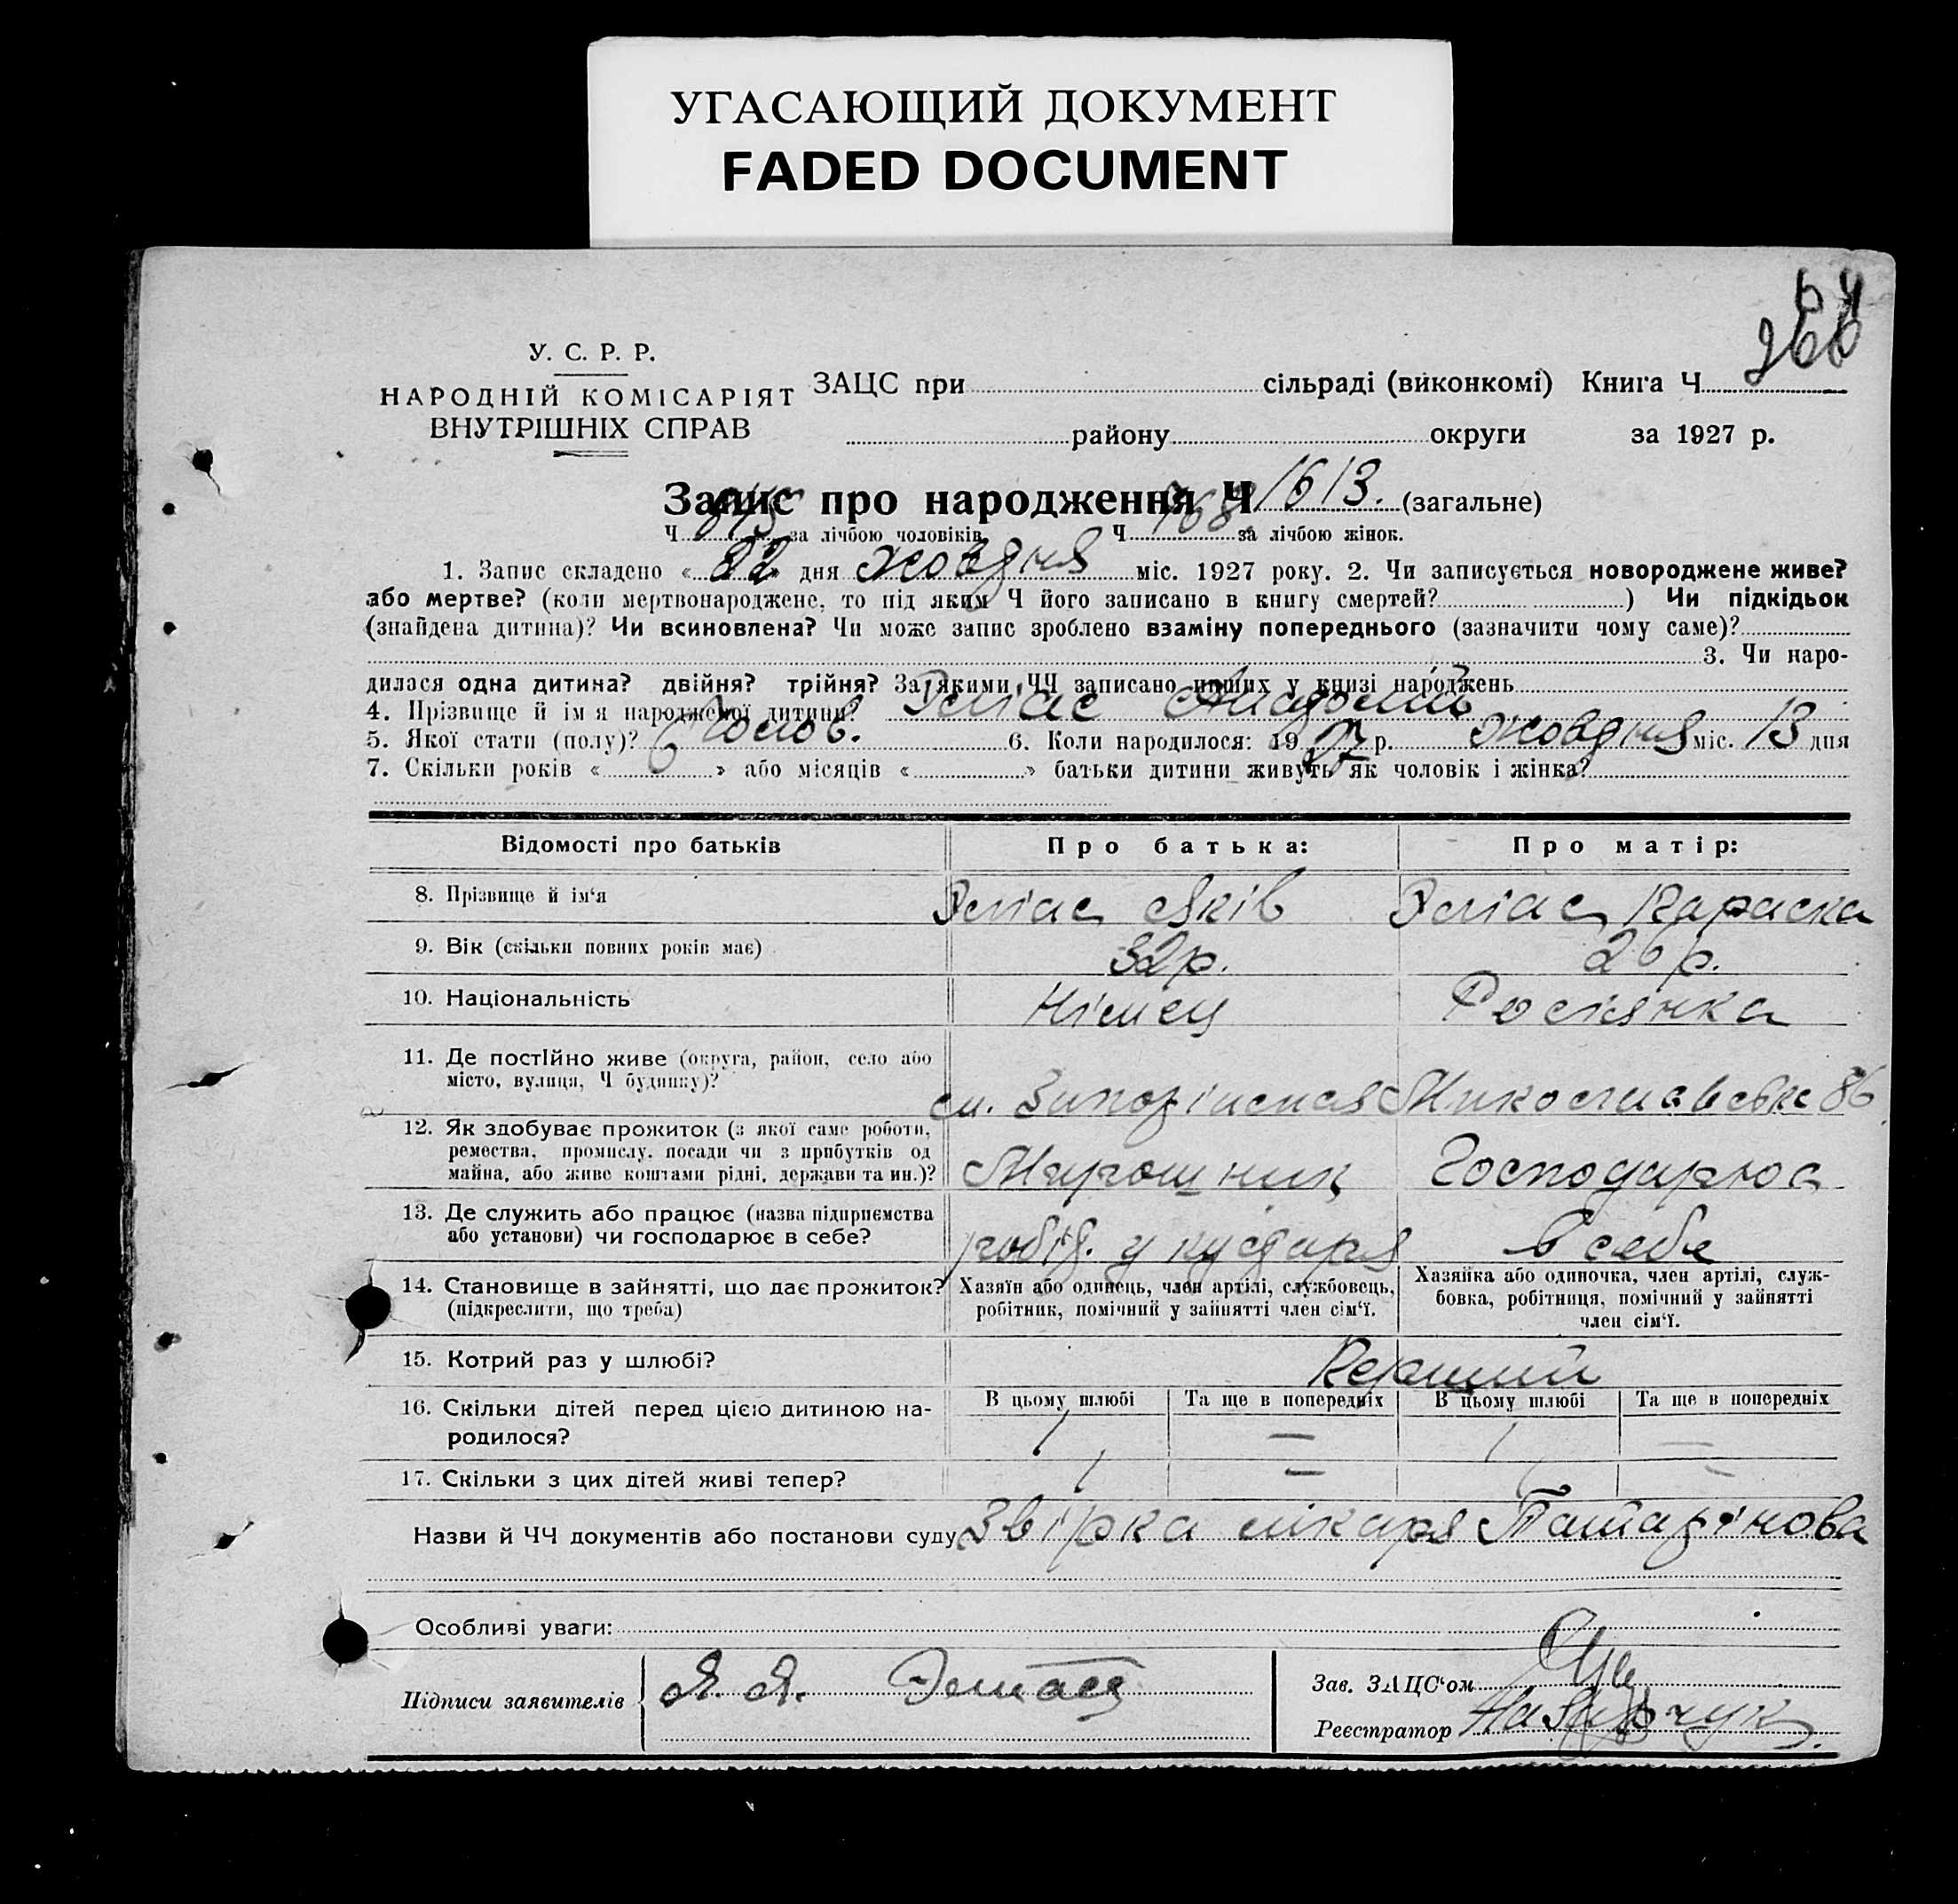 УГАСАЮЩИЙ ДОКУМЕНТ
FADED DOCUMENT
У. С. Р. Р.
НАРОДНІЙ КОМІСАРІЯТ
ВНУТРІШНІХ СПРАВ
ЗАЦС при сільраді (виконкомі) Книга Ч.
району округи за 1927 р.
Запис про народження Ч 1613. (загальне)
Ч. 845 за лічбою чоловіків Ч 768 за лічбою жінок.
1. Запис складено « 22 » дня жовдня міс. 1927 року. 2. Чи записується новороджене живе?
або мертве? (коли мертвонароджене, то під яким Ч його записано в книгу смертей? ) Чи підкідьок
(знайдена дитина)? Чи всиновлена? Чи може запис зроблено взаміну попереднього (зазначити чому саме)?
3. Чи наро-
дилася одна дитина? двійня? трійня? За якими ЧЧ записано инших у книзі народжень
4. Прізвище й ім я народженої дитини? Еліас Анатолій
5. Якої стати (полу)? Чолов. 6. Коли народилося: 1927 р. жовдня міс. 13 дня
7. Скільки років « 6 » або місяців « » батьки дитини живуть як чоловік і жінка?
Відомості про батьків Про батька: Про матір:
8. Прізвище й ім‘я Еліас Яків Еліас Параска
9. Вік (скільки повних років має) 32 р. 26 р.
10. Національність Німец Росіянка
11. Де постійно живе (округа, район, село або
місто, вулиця, Ч будинку)? 86
12. Як здобуває прожиток (з якої саме роботи,
ремества, промислу, посади чи з прибутків од
майна, або живе коштами рідні, держави та ин.)? Мирошник Господарює
13. Де служить або працює (назва підприємства
або установи) чи господарює в себе? робіт. у кустаря в себе
14. Становище в зайнятті, що дає прожиток?
(підкреслити, що треба)
Хазяїн або одинець, член артілі, службовець,
робітник, помічний у зайнятті член сім‘ї.
Хазяйка або одиночка, член артілі, служ-
бовка, робітниця, помічний у зайнятті
член сім‘ї.
15. Котрий раз у шлюбі? Перший
В цьому шлюбі Та ще в попередніх В цьому шлюбі Та ще в попередніх
16. Скільки дітей перед цією дитиною на-
родилося? 1 — 1 —
17. Скільки з цих дітей живі тепер? 1 — 1 —
Назви й ЧЧ документів або постанови суду лікаря
Особливі уваги:
Підписи заявителів Я. Я. Элиас
Зав. ЗАЦС‘ом
Реєстратор